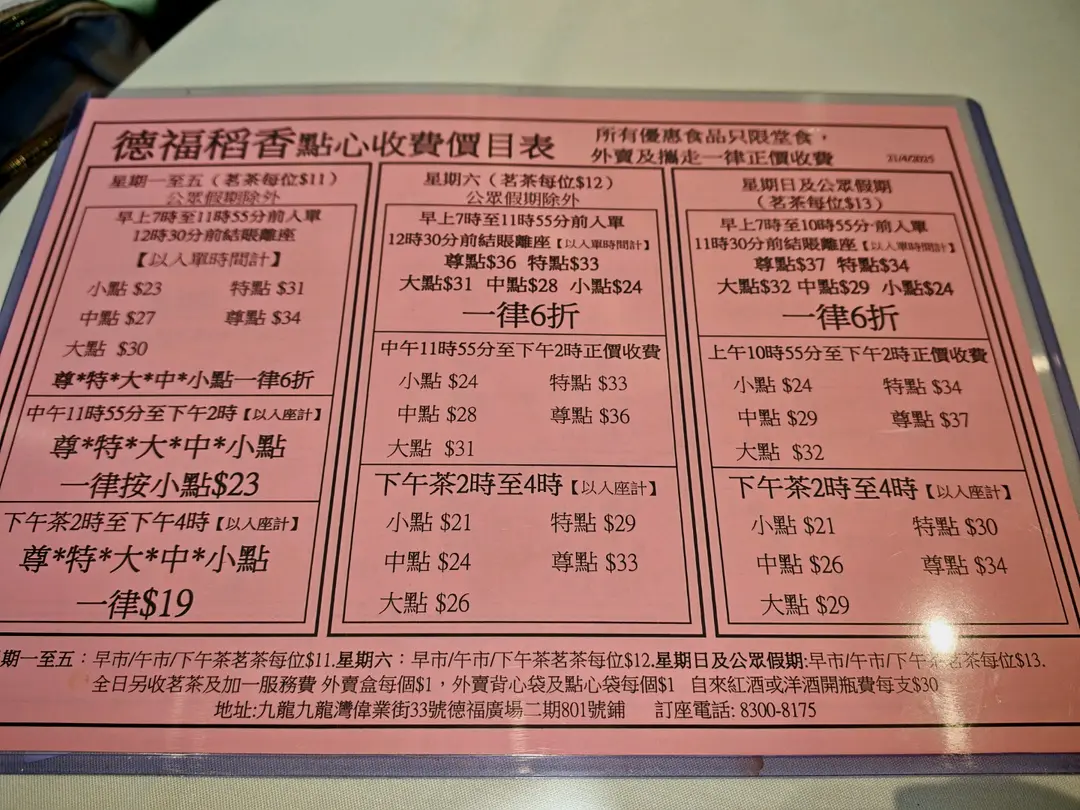 德福稻香點心收費價目表
所有優惠食品只限堂食，
外賣及攜走一律正價收費
21/4/2025
星期一至五（茗茶每位$11）
公眾假期除外
早上7時至11時55分前入單
12時30分前結賬離座
【以入單時間計】
小點 $23 特點 $31
中點 $27 尊點 $34
大點 $30
尊*特*大*中*小點一律6折
中午11時55分至下午2時【以入座計】
尊*特*大*中*小點
一律按小點$23
下午茶2時至下午4時【以入座計】
尊*特*大*中*小點
一律$19
星期六（茗茶每位$12）
公眾假期除外
早上7時至11時55分前入單
12時30分前結賬離座【以入單時間計】
尊點$36 特點$33
大點$31 中點$28 小點$24
一律6折
中午11時55分至下午2時正價收費
小點 $24 特點 $33
中點 $28 尊點 $36
大點 $31
下午茶2時至4時【以入座計】
小點 $21 特點 $29
中點 $24 尊點 $33
大點 $26
星期日及公眾假期
（茗茶每位$13）
早上7時至10時55分前入單
11時30分前結賬離座【以入單時間計】
尊點$37 特點$34
大點$32 中點$29 小點$24
一律6折
上午10時55分至下午2時正價收費
小點 $24 特點 $34
中點 $29 尊點 $37
大點 $32
下午茶2時至4時【以入座計】
小點 $21 特點 $30
中點 $26 尊點 $34
大點 $29
期一至五：早市/午市/下午茶茗茶每位$11.星期六：早市/午市/下午茶茗茶每位$12.星期日及公眾假期:早市/午市/下午茶茗茶每位$13.
全日另收茗茶及加一服務費 外賣盒每個$1，外賣背心袋及點心袋每個$1 自來紅酒或洋酒開瓶費每支$30
地址:九龍九龍灣偉業街33號德福廣場二期801號鋪 訂座電話: 8300-8175